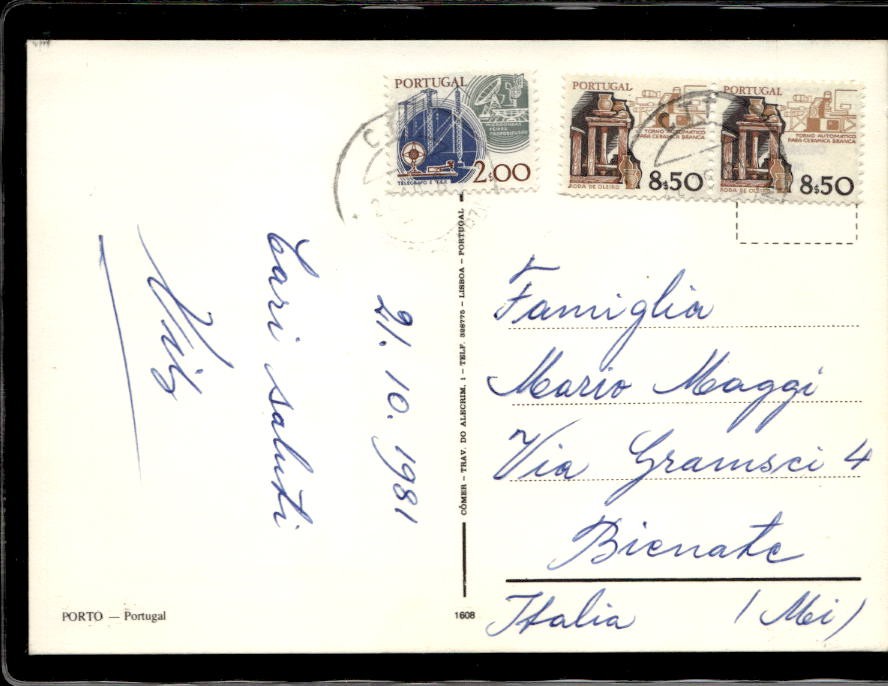 PORTUGAL
TELEGRAFO E
2$00
PORTUGAL
TORNO AUTOMATICO
PARA CERAMICA BRANCA
RODA DE OLEIRO
8$50
PORTUGAL
TORNO AUTOMATICO
PARA CERAMICA BRANCA
RODA DE OLEIRO
8$50
21. 10. 1981
Cari saluti
CÔMER — TRAV. DO ALECRIM, 1 — TELF. 328775 — LISBOA — PORTUGAL
Famiglia
Mario Maggi
Via Gramsci 4
Bienate
Italia (Mi)
PORTO — Portugal
1608